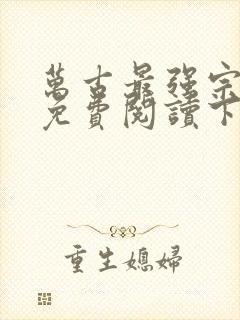 萬古最強宗
免費閱讀下
重生媳婦